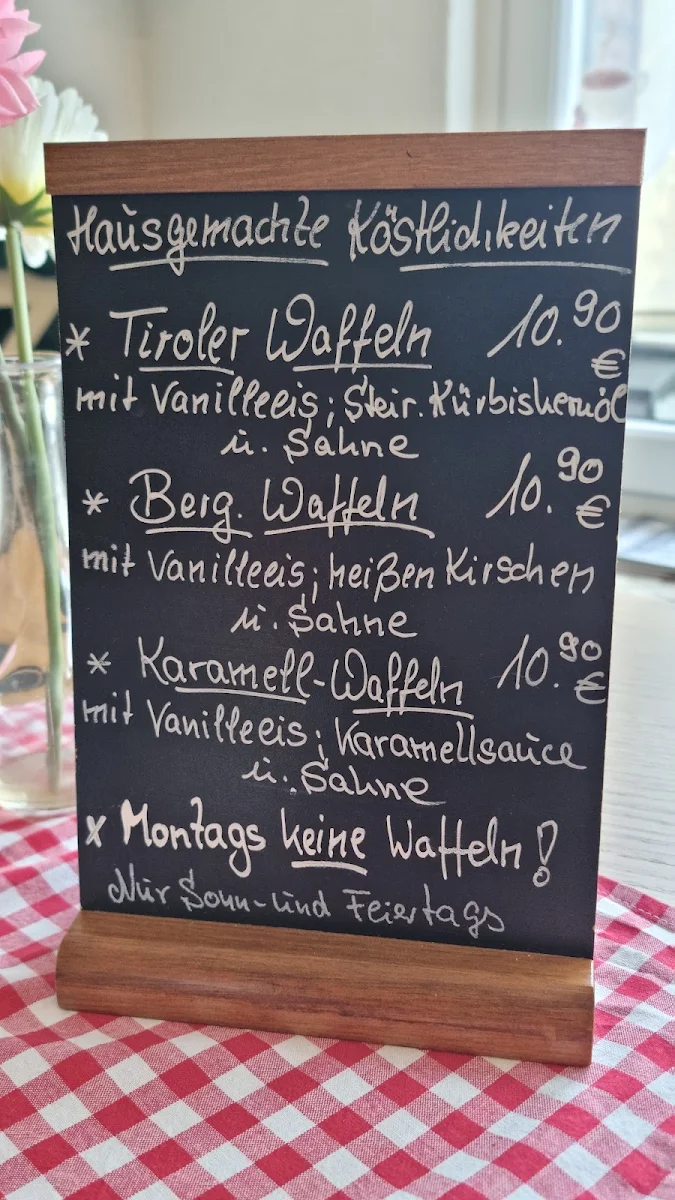 Hausgemachte Köstlichkeiten
* Tiroler Waffeln 10.90 €
mit Vanilleeis; Steir. Kürbiskernöl
u. Sahne
* Berg. Waffeln 10.90 €
mit Vanilleeis; heißen Kirschen
u. Sahne
* Karamell-Waffeln 10.90 €
mit Vanilleeis; Karamellsauce
u. Sahne
* Montags keine Waffeln!
Nur Sonn- und Feiertags